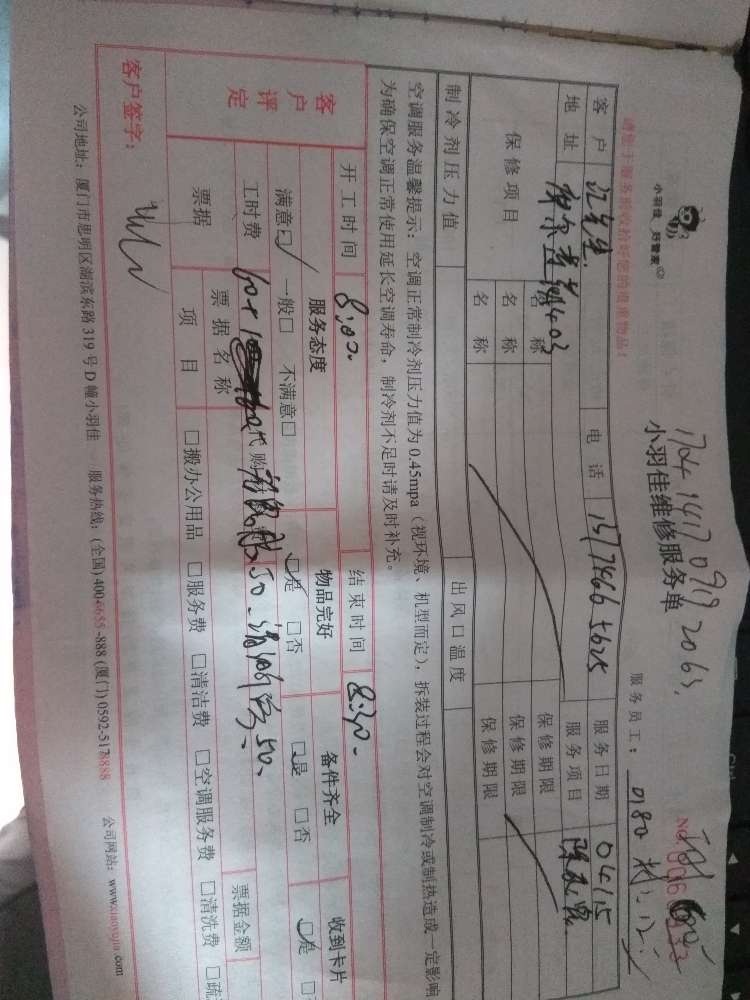 小羽佳 好管家
1704 1417 0919 2063
小羽佳维修服务单
请您于服务前收拾好您的贵重物品!
服务员工: 0180
客户 沈先生 电话 服务日期 04/15
地址 403 服务项目
保修项目 名称 保修期限
名称 保修期限
名称 保修期限
制冷剂压力值 出风口温度
空调服务温馨提示:空调正常制冷剂压力值为0.45mpa(视环境、机型而定),拆装过程会对空调制冷或制热造成一定影响
为确保空调正常使用延长空调寿命,制冷剂不足时请及时补充。
开工时间 8:00 结束时间 8:30
客户评定 服务态度 物品完好 备件齐全 收到卡片
满意☑ 一般□ 不满意□ □是 □否 □是 □否 □是
工时费 60+ 代购 50 50
票据 票据名称 票据金额
项目 □搬办公用品 □服务费 □清洁费 □空调服务费 □清洗费 □疏
客户签字:
公司地址:厦门市思明区湖滨东路319号D幢小羽佳 服务热线:(全国)400-6655-888(厦门)0592-5178888 公司网站:www.xiaoyujia.com